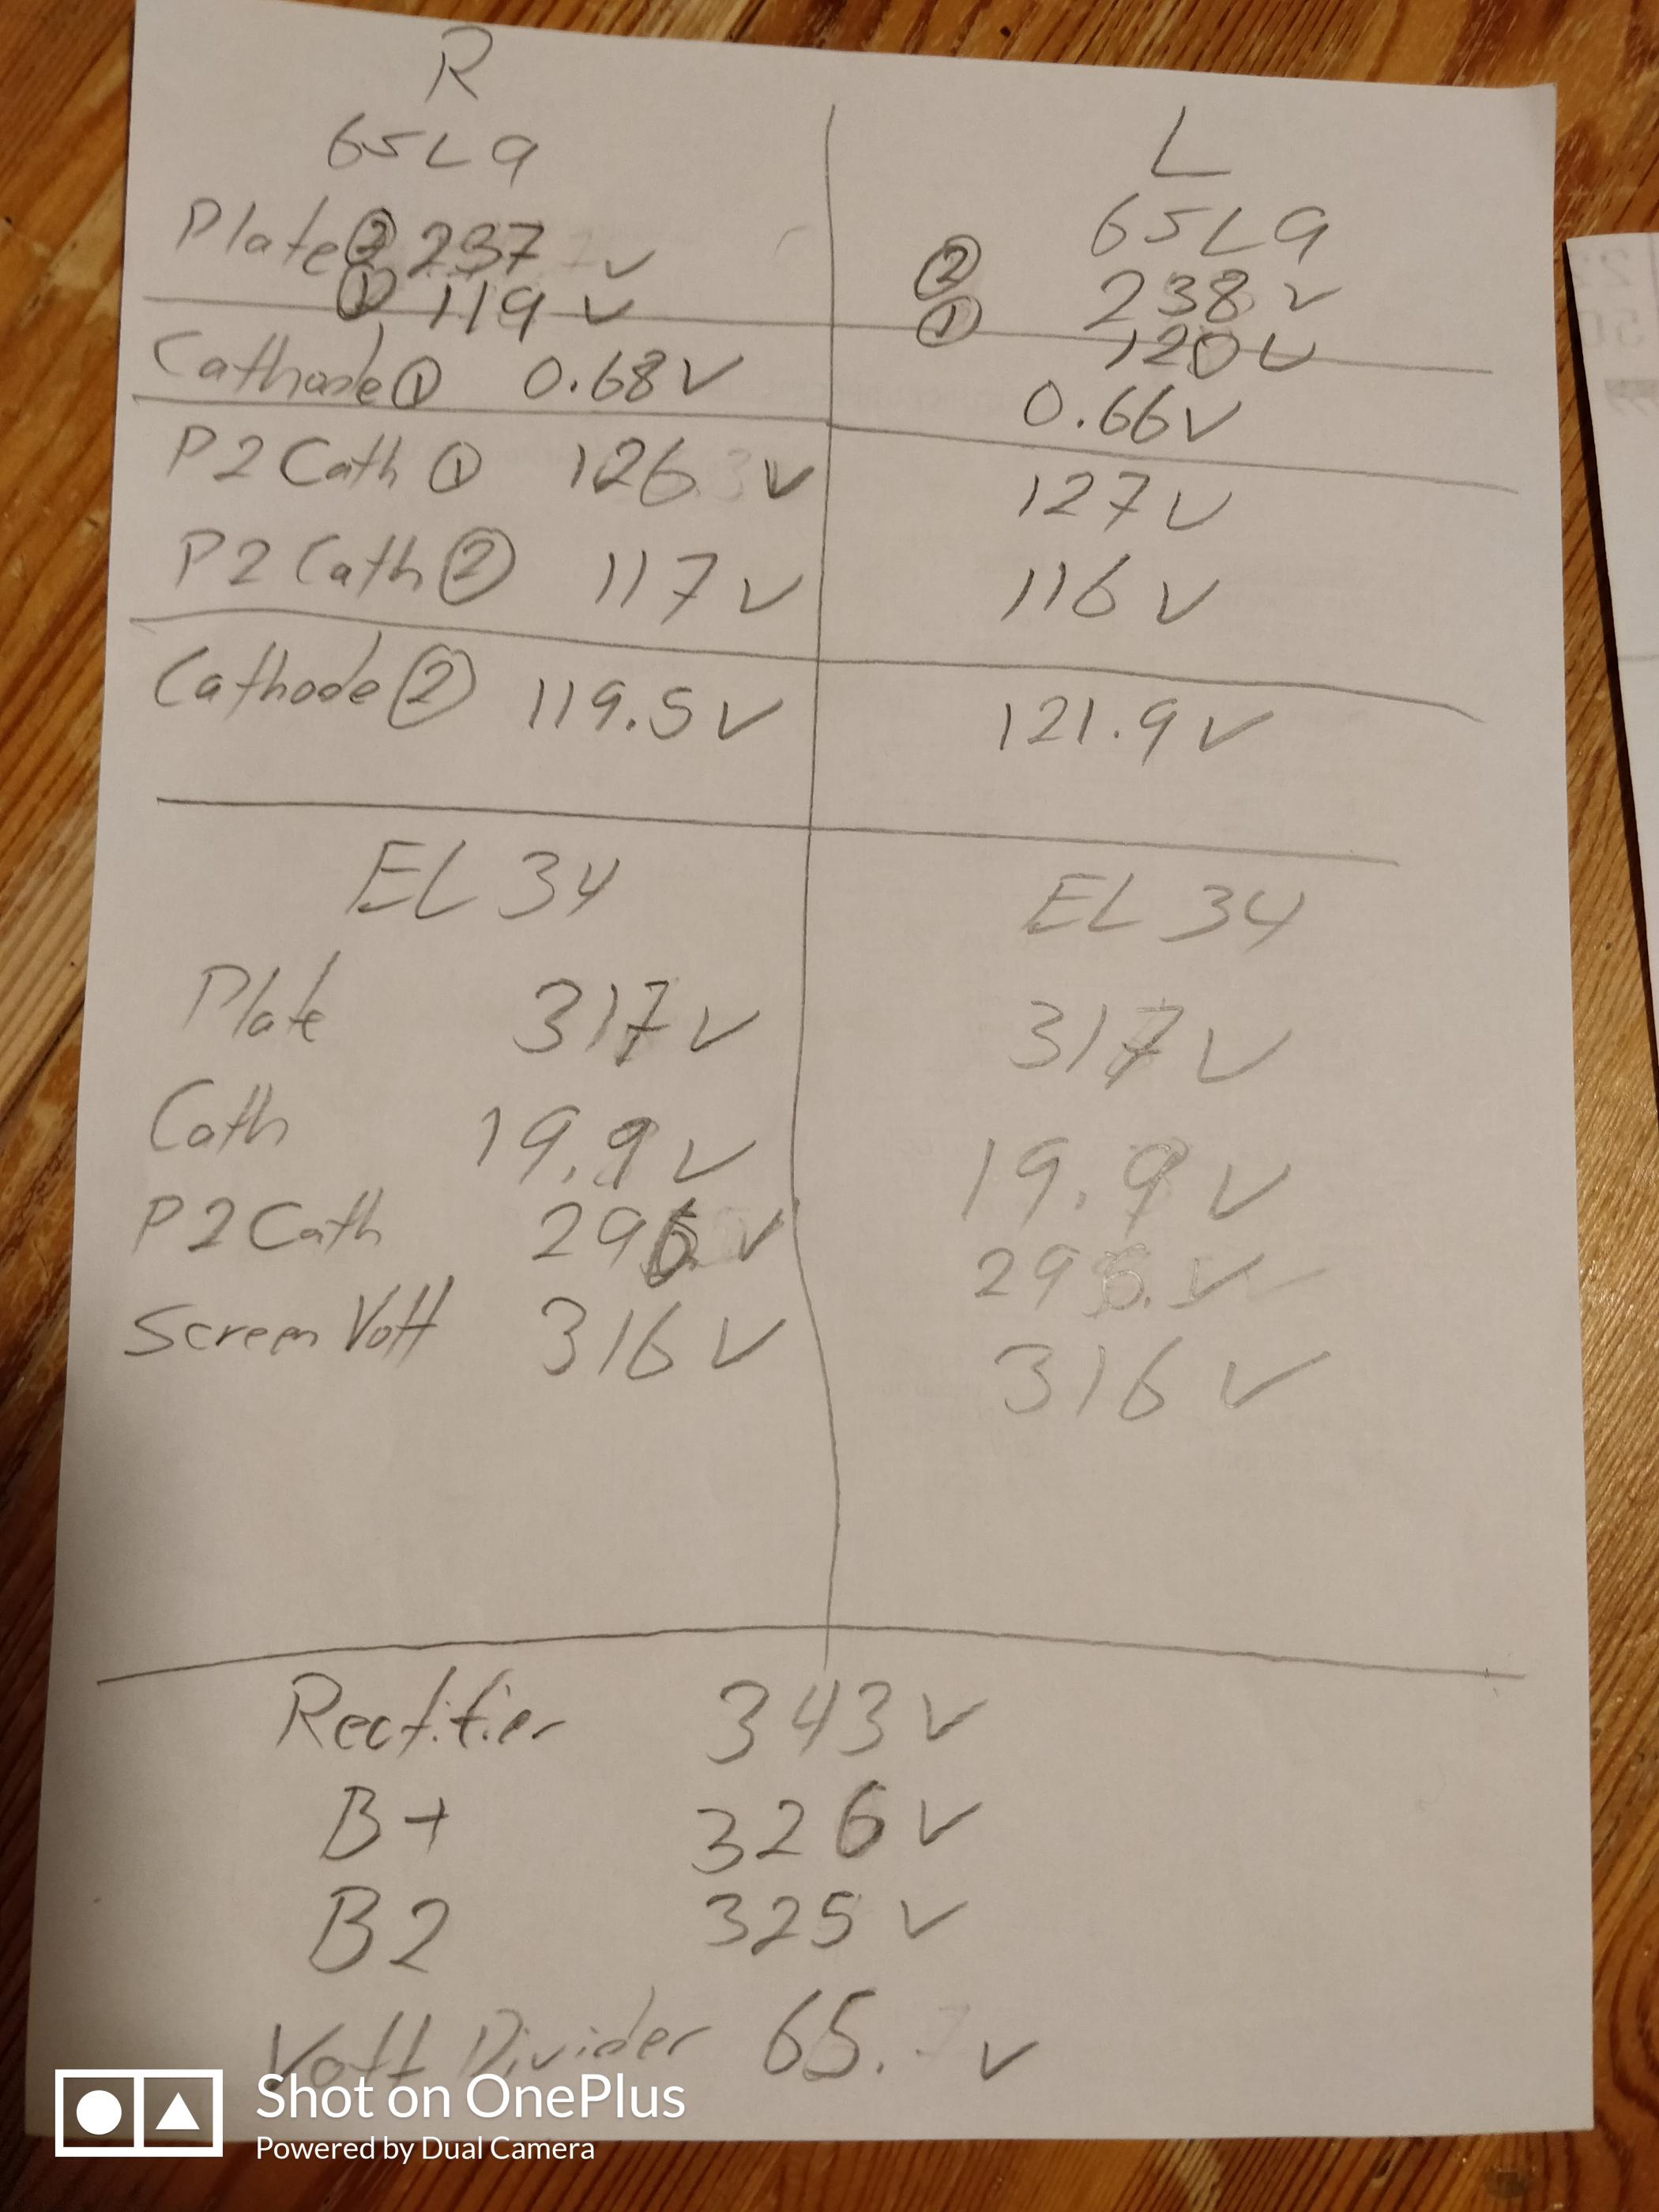 R
L
6SL9
6SL9
Plate ② 237 v
② 238 v
① 119 v
① 120 v
Cathode ① 0.68 v
0.66 v
P2 Cath ① 126 v
127 v
P2 Cath ② 117 v
116 v
Cathode ② 119.5 v
121.9 v
EL 34
EL 34
Plate 317 v
317 v
Cath 19.9 v
19.9 v
P2 Cath 296 v
296. v
Screen Volt 316 v
316 v
Rectifier 343 v
B+ 326 v
B2 325 v
Volt Divider 65. v
Shot on OnePlus
Powered by Dual Camera